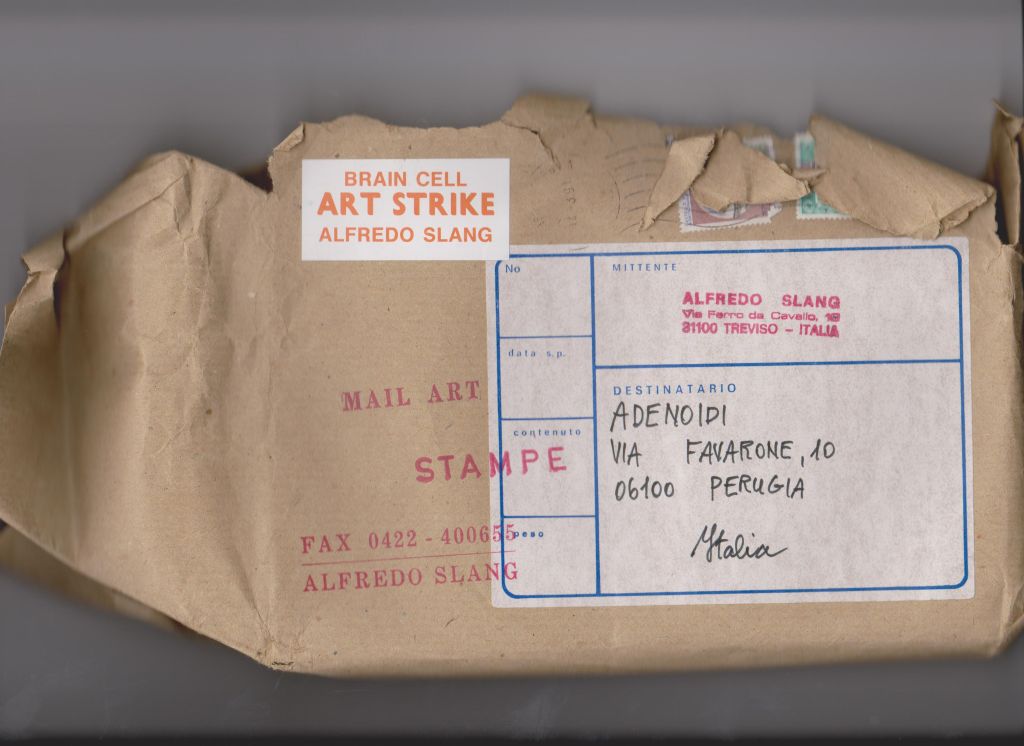 BRAIN CELL
ART STRIKE
ALFREDO SLANG
No
MITTENTE
ALFREDO SLANG
Via Ferro da Cavallo, 18
31100 TREVISO - ITALIA
data s.p.
DESTINATARIO
ADENOIDI
VIA FAVARONE, 10
06100 PERUGIA
Italia
contenuto
peso
MAIL ART
STAMPE
FAX 0422 - 400655
ALFREDO SLANG